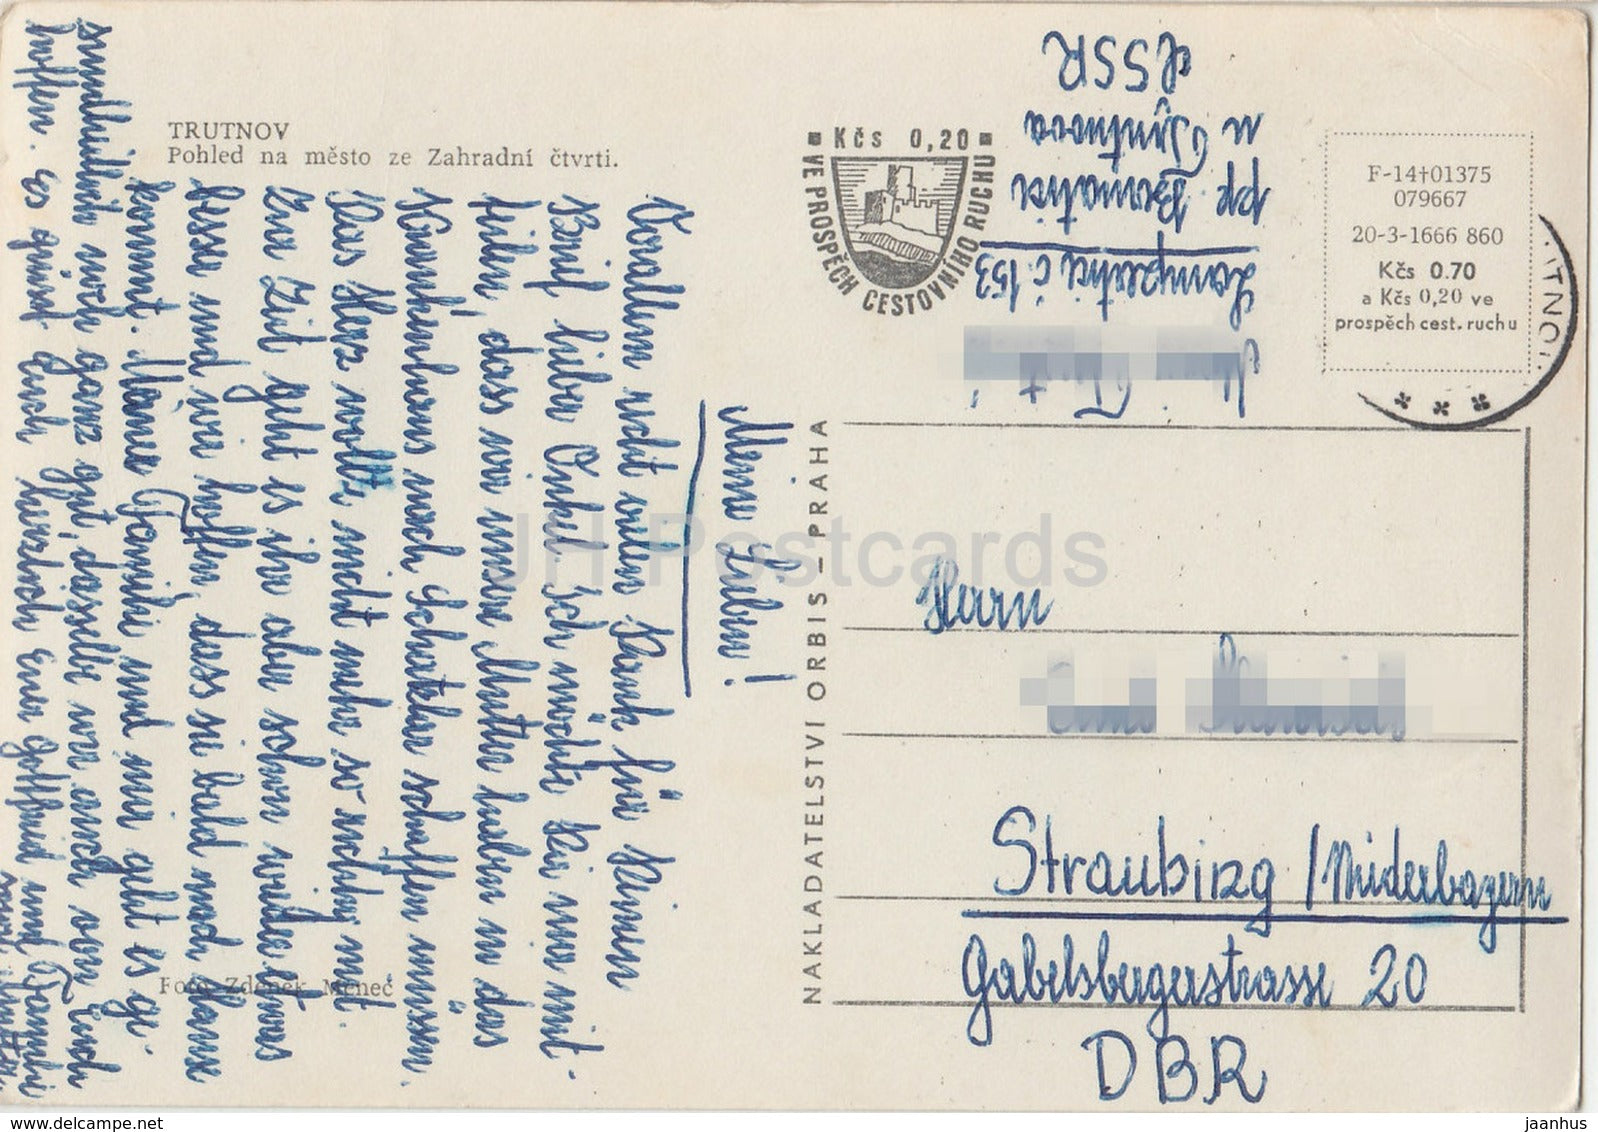 TRUTNOV
Pohled na město ze Zahradní čtvrti.
Meine Lieben!
Vorallem recht vielen Dank für Deinen
Brief lieber Onkel. Ich möchte Dir nur mit-
teilen, dass wir unsere Mutter haben in das
Krankenhaus nach Schatzlar schaffen müssen.
Das Herz wollte nicht mehr so richtig mit.
Zur Zeit geht es ihr aber schon wieder etwas
besser und wir hoffen, dass sie bald nach Hause
kommt. Meiner Familie und mir geht es ge-
sundheitlich noch ganz gut, dasselbe wir auch von Euch
hoffen. Es grüsst Euch herzlich Euer Gottfried und Familie
Foto Zdeněk Menec
Kčs 0,20
VE PROSPĚCH CESTOVNÍHO RUCHU
NAKLADATELSTVÍ ORBIS – PRAHA
Lampertice č. 153
pp. Bernatice
u Trutnova
ČSSR
F-14†01375
079667
20-3-1666 860
Kčs 0.70
a Kčs 0,20 ve
prospěch cest. ruchu
Herrn
Straubing / Niederbayern
Gabelsbergerstrasse 20
DBR
JH Postcards
www.delcampe.net
jaanhus